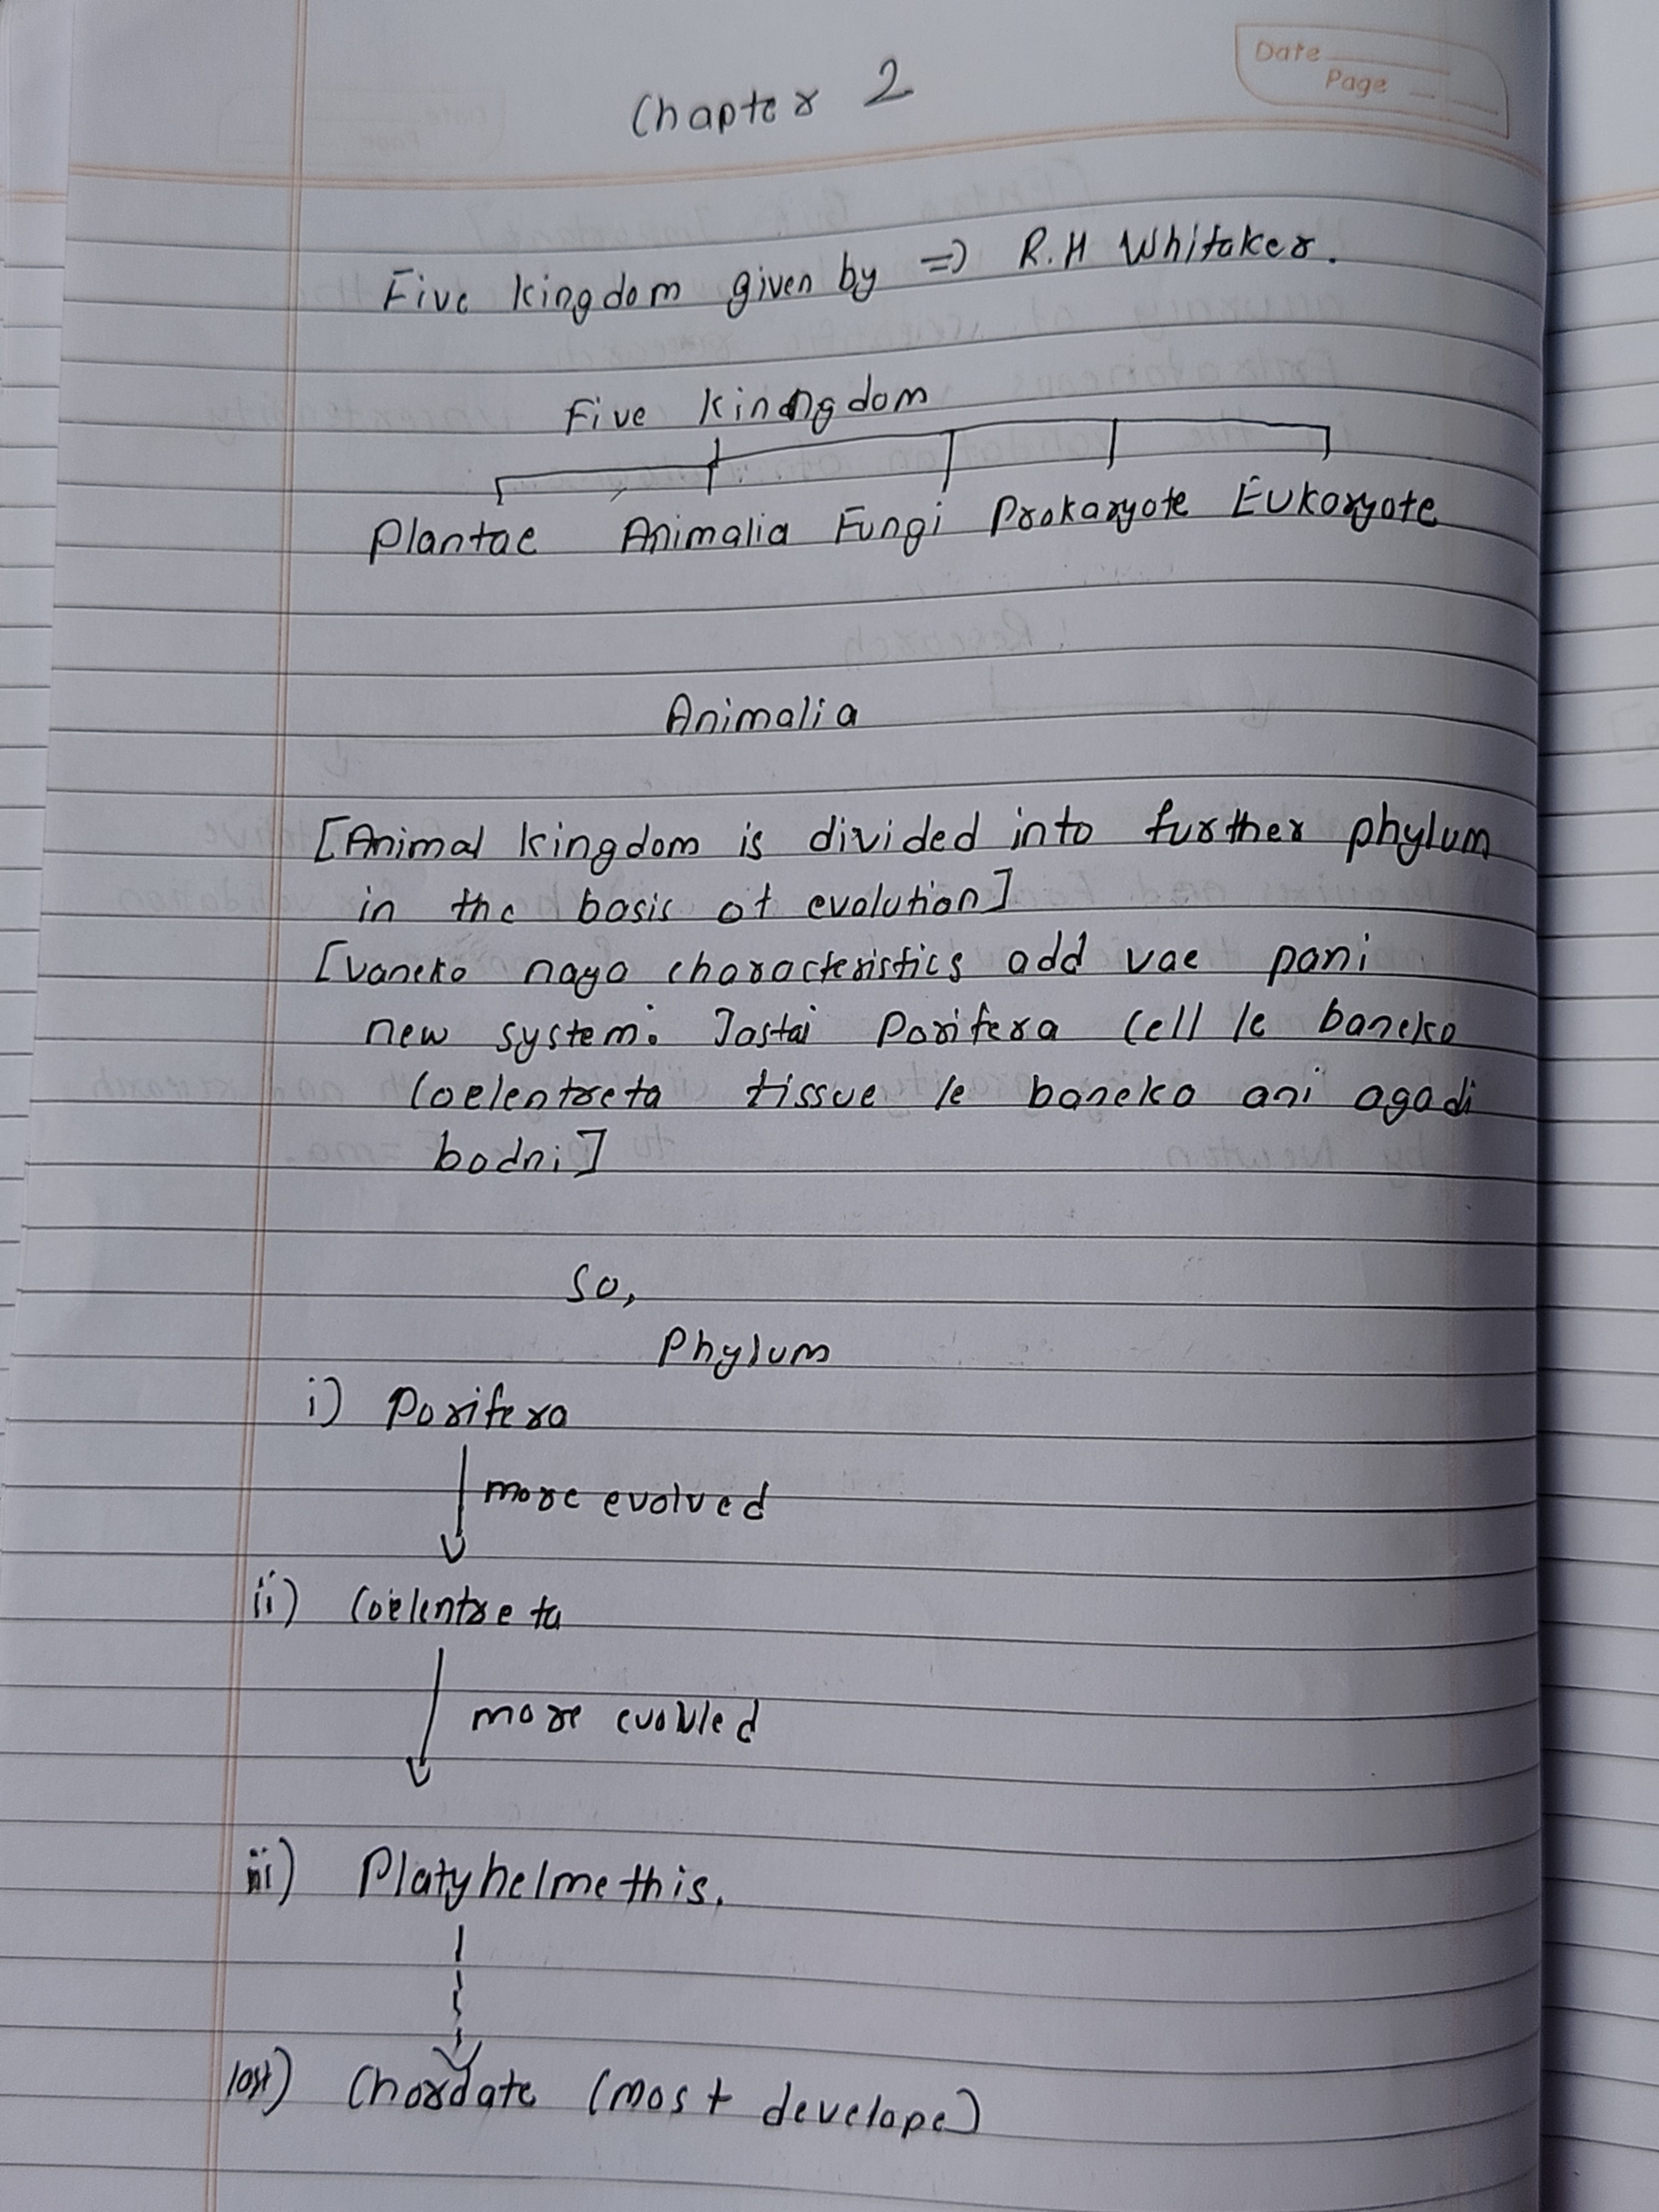 Date
Page
Chapter 2
Five kingdom given by => R.H Whitaker.
Five kindngdom
Plantae Animalia Fungi Prokaryote Eukaryote
Animalia
[Animal kingdom is divided into further phylum
in the basis of evolution]
[vaneko naya characteristics add vae pani
new system. Jastai Porifera cell le baneko
Coelentreta tissue le baneko ani agadi
badni]
So,
Phylum
i) Porifera
more evolved
ii) Coelentreta
more evovled
iii) Platyhelmethis.
last) Chordate (most develope)